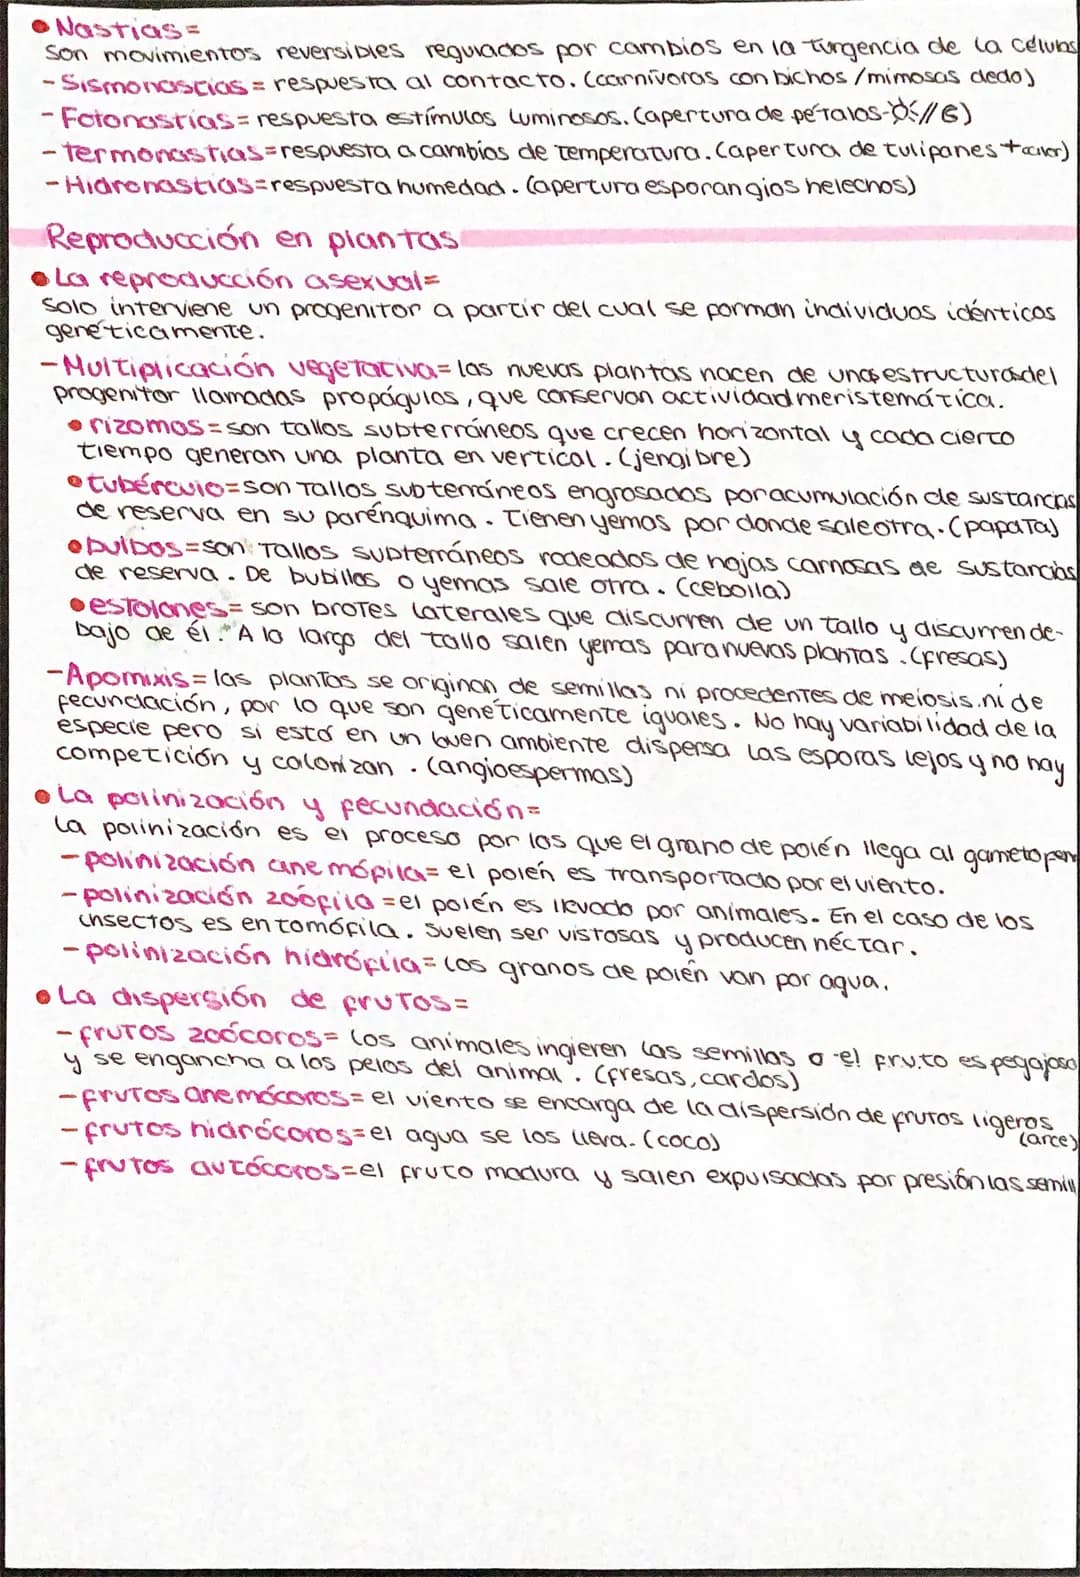 • Nastias=
Son movimientos reversibles regulados por cambios en la turgencia de la células
- Sismonastias = respuesta al contacto. (carnívoras con bichos / mimosas dedo)
- Fotonastias = respuesta estímulos luminosos. (apertura de pétalos-
- Termonastias = respuesta a cambios de temperatura. (apertura de tulipanes + calor)
- Hidronastias = respuesta humedad. (apertura esporangios helechos)
Reproducción en plantas
• La reproducción asexual=
Solo interviene un progenitor a partir del cual se forman individuos idénticos
genéticamente.
- Multiplicación vegetativa= las nuevas plantas nacen de unas estructuras del
progenitor llamadas propágulos, que conservan actividad meristemática.
• rizomas = son tallos subterráneos que crecen horizontal y cada cierto
tiempo generan una planta en vertical. (jengibre)
• tubérculo= son tallos subterráneos engrosados por acumulación de sustancias
de reserva en su parénquima. Tienen yemas por donde sale otra. (papata)
• bulbos = son tallos subterráneos rodeados de hojas carnosas de sustancias
de reserva. De bubillas o yemas sale otra. (cebolla)
• estolones = son brotes laterales que discurren de un tallo y discurren de-
bajo de él. A lo largo del tallo salen yemas para nuevas plantas. (fresas)
- Apomixis = las plantas se originan de semillas ni procedentes de meiosis ni de
fecundación, por lo que son genéticamente iguales. No hay variabilidad de la
especie pero si está en un buen ambiente dispersa las esporas lejos y no hay
competición y colonizan. (angioespermas)
• La polinización y fecundación=
La polinización es el proceso por los que el grano de polén llega al gameto fem
- polinización anemófila= el polén es transportado por el viento.
- polinización zoófila = el polén es llevado por animales. En el caso de los
insectos es entomófila. Suelen ser vistosas y producen néctar.
- polinización hidrófila= los granos de polén van por agua.
• La dispersión de frutos=
- frutos zoócoros= los animales ingieren las semillas o el fruto es pegajoso
y se engancha a los pelos del animal. (fresas, cardos)
- frutos anemócoros= el viento se encarga de la dispersión de frutos ligeros
(arce)
- frutos hidrócoros= el agua se los lleva. (coco)
- frutos autócoros= el fruto madura y salen expulsadas por presión las semill